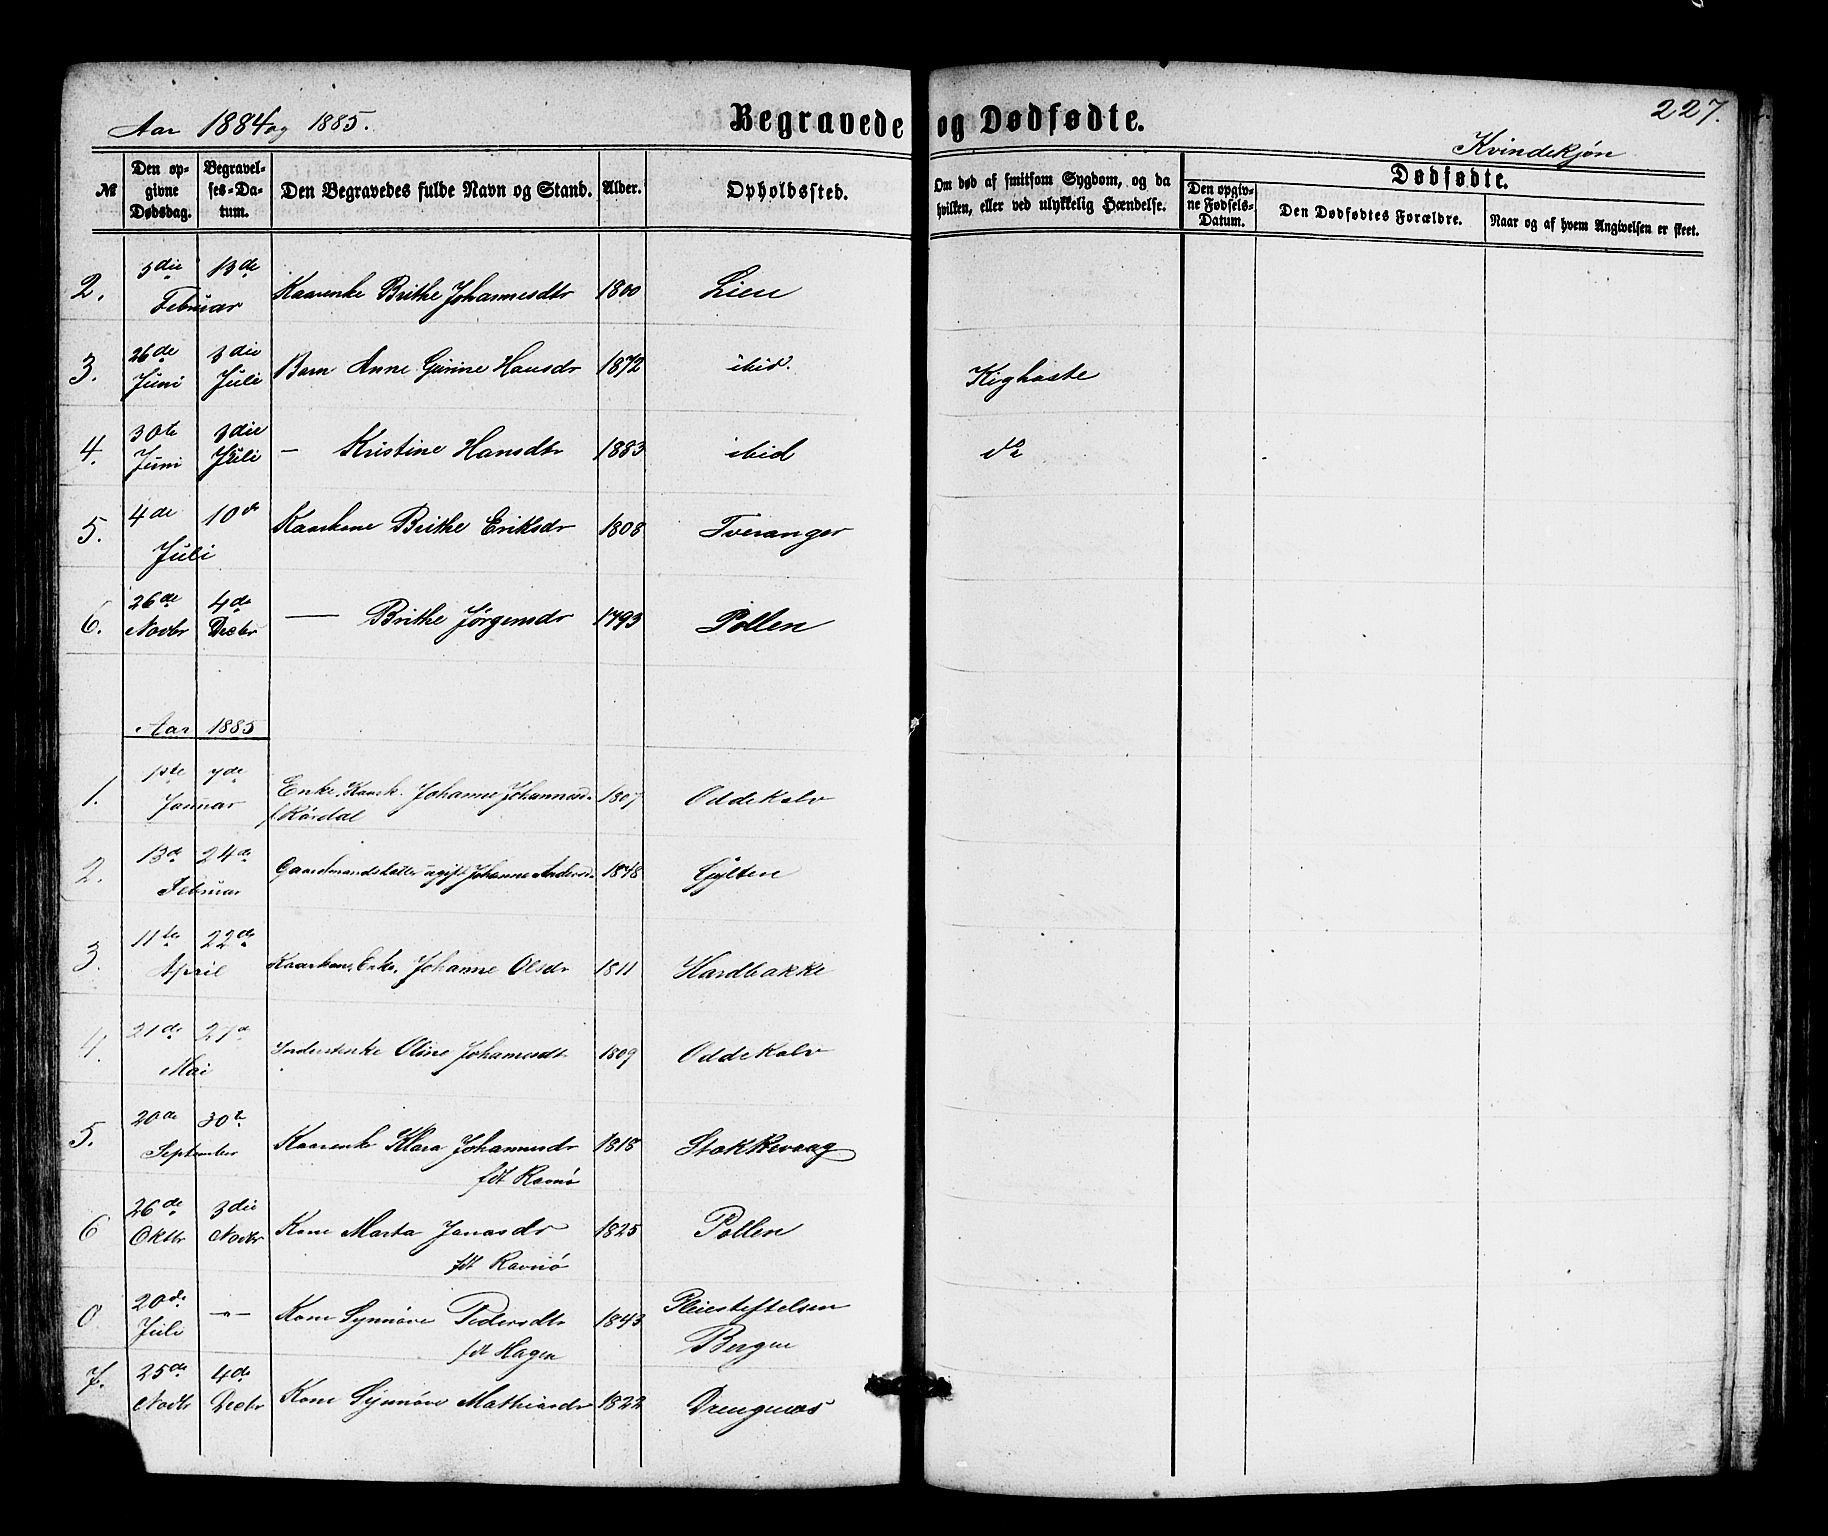 Aar 1884 og 1885.
Begravede og Dødfødte.
227.
Kvindekjøn
№ Den opgivne Dødsdag. Begravelses-Datum. Den Begravedes fulde Navn og Stand. Alder. Opholdssted. Om død af smitsom Sygdom, og da hvilken, eller ved ulykkelig Hændelse. Dødfødte. Den opgivne Fødsels-Datum. Den Dødfødtes Forældre. Naar og af hvem Angivelsen er skeet.
2. 5die 13de Februar Kaarenke Brithe Johannesdtr 1800 Lien
3. 26de Juni 3die Juli Barn Anne Gurine Hansdr 1872 ibid. Kighoste
4. 30te Juni 3die Juli — Kristine Hansdtr 1883 ibid do
5. 4de 10de Juli Kaarkone Brithe Eriksdr 1808 Tveranger
6. 26de Novbr 4de Decbr — Brithe Jørgensdr 1793 Pollen
Aar 1885
1. 1ste 7de Januar Enke, Kaark. Johanne Johannesd. 1807 Oddekalv
f. Rørdal
2. 13de 24de Februar Gaardmandsdatter ugift Johanne Andersd. 1848 Gylten
3. 11te 22de April Kaarkone, Enke, Johanne Olsdr 1811 Hardbakke
4. 21de 27de Mai Inderstenke Oline Johannesdt 1809 Oddekalv
5. 20de 30te September Kaarenke Klara Johannesdr 1818 Stokkevaag
fdt Ravnø
6 26de Oktbr 3die Novbr Kone Marta Jonasdr 1825 Pollen
fdt Ravnø
0. 20de Juli -"- Kone Synnøve Pedersdtr 1843 Pleiestiftelsen
fdt Hagen Bergen
7. 25de Novbr 4de Decbr Kone Synnøve Mathiasdr 1822 Drengenæs